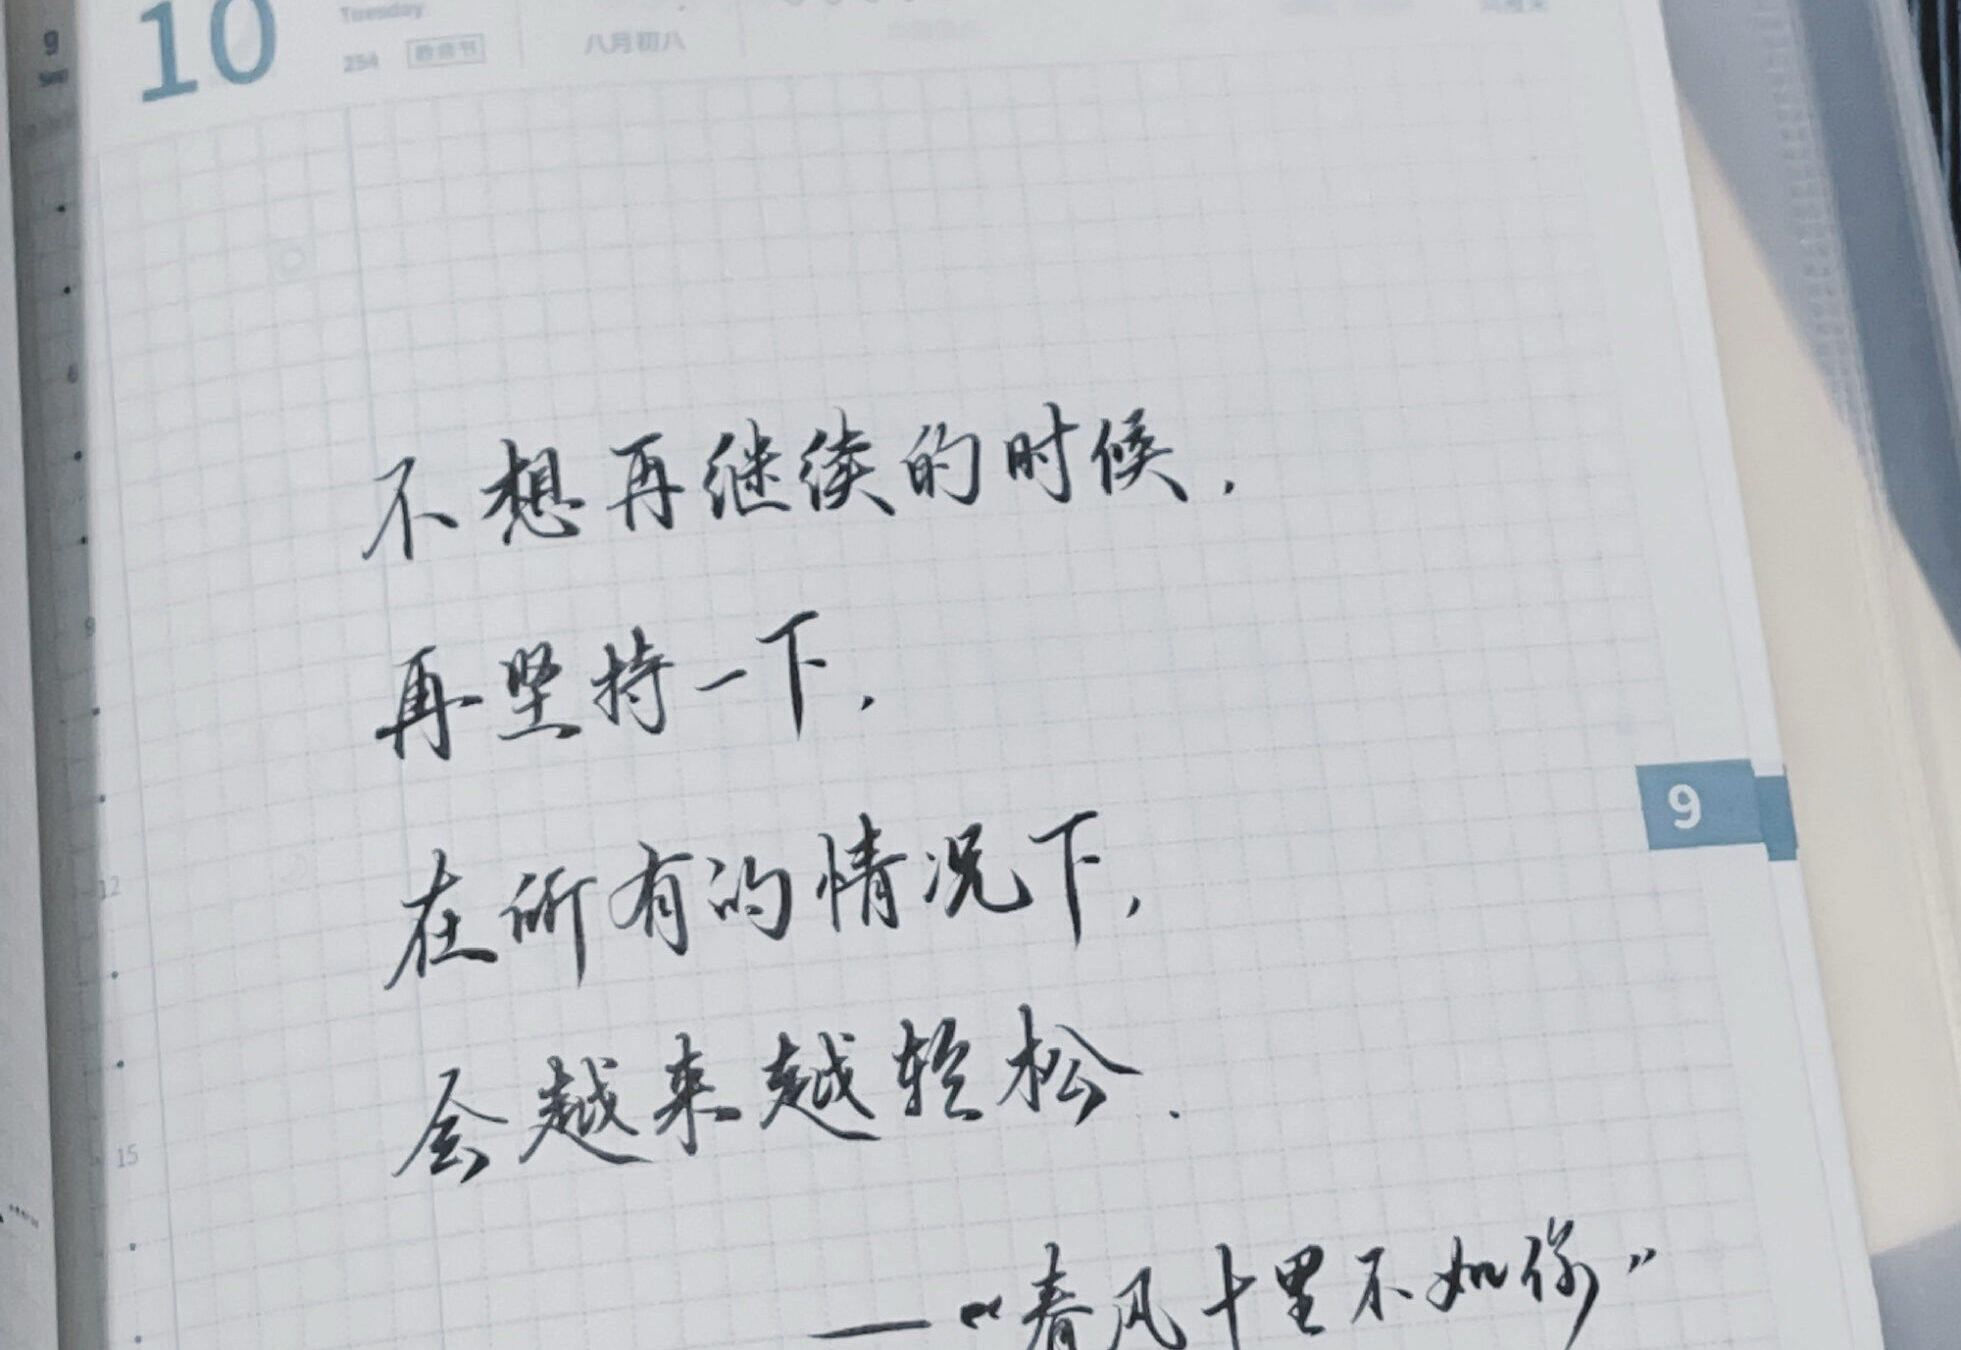 9
Sep
10
Tuesday
254 教师节
八月初八
不想再继续的时候，
再坚持一下，
在所有的情况下，
会越来越轻松.
——“春风十里不如你”
6
9
12
15
9